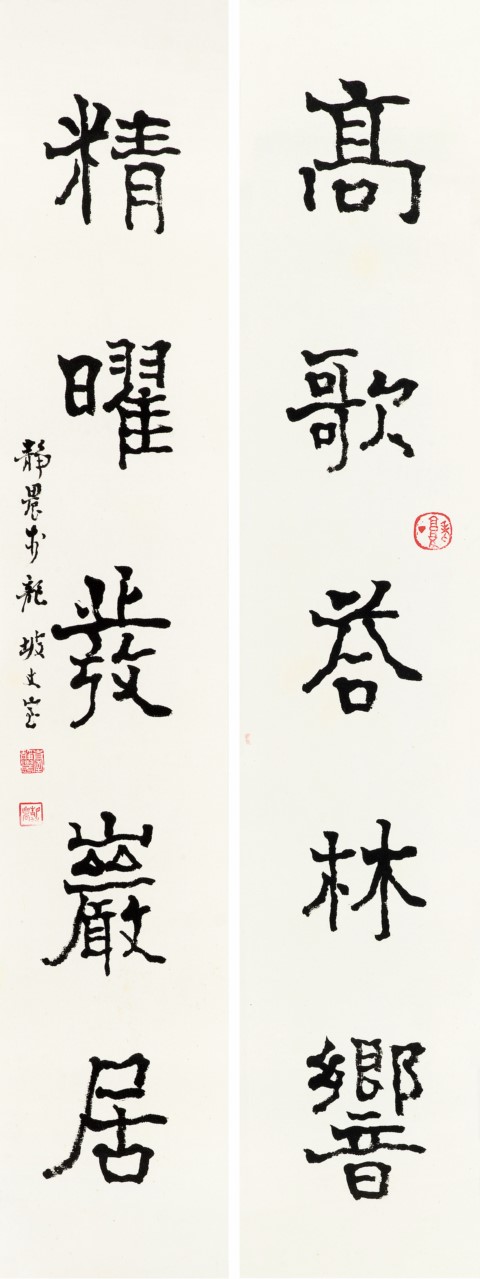 高歌荅林響
精曜發巖居
靜農於龍坡丈室